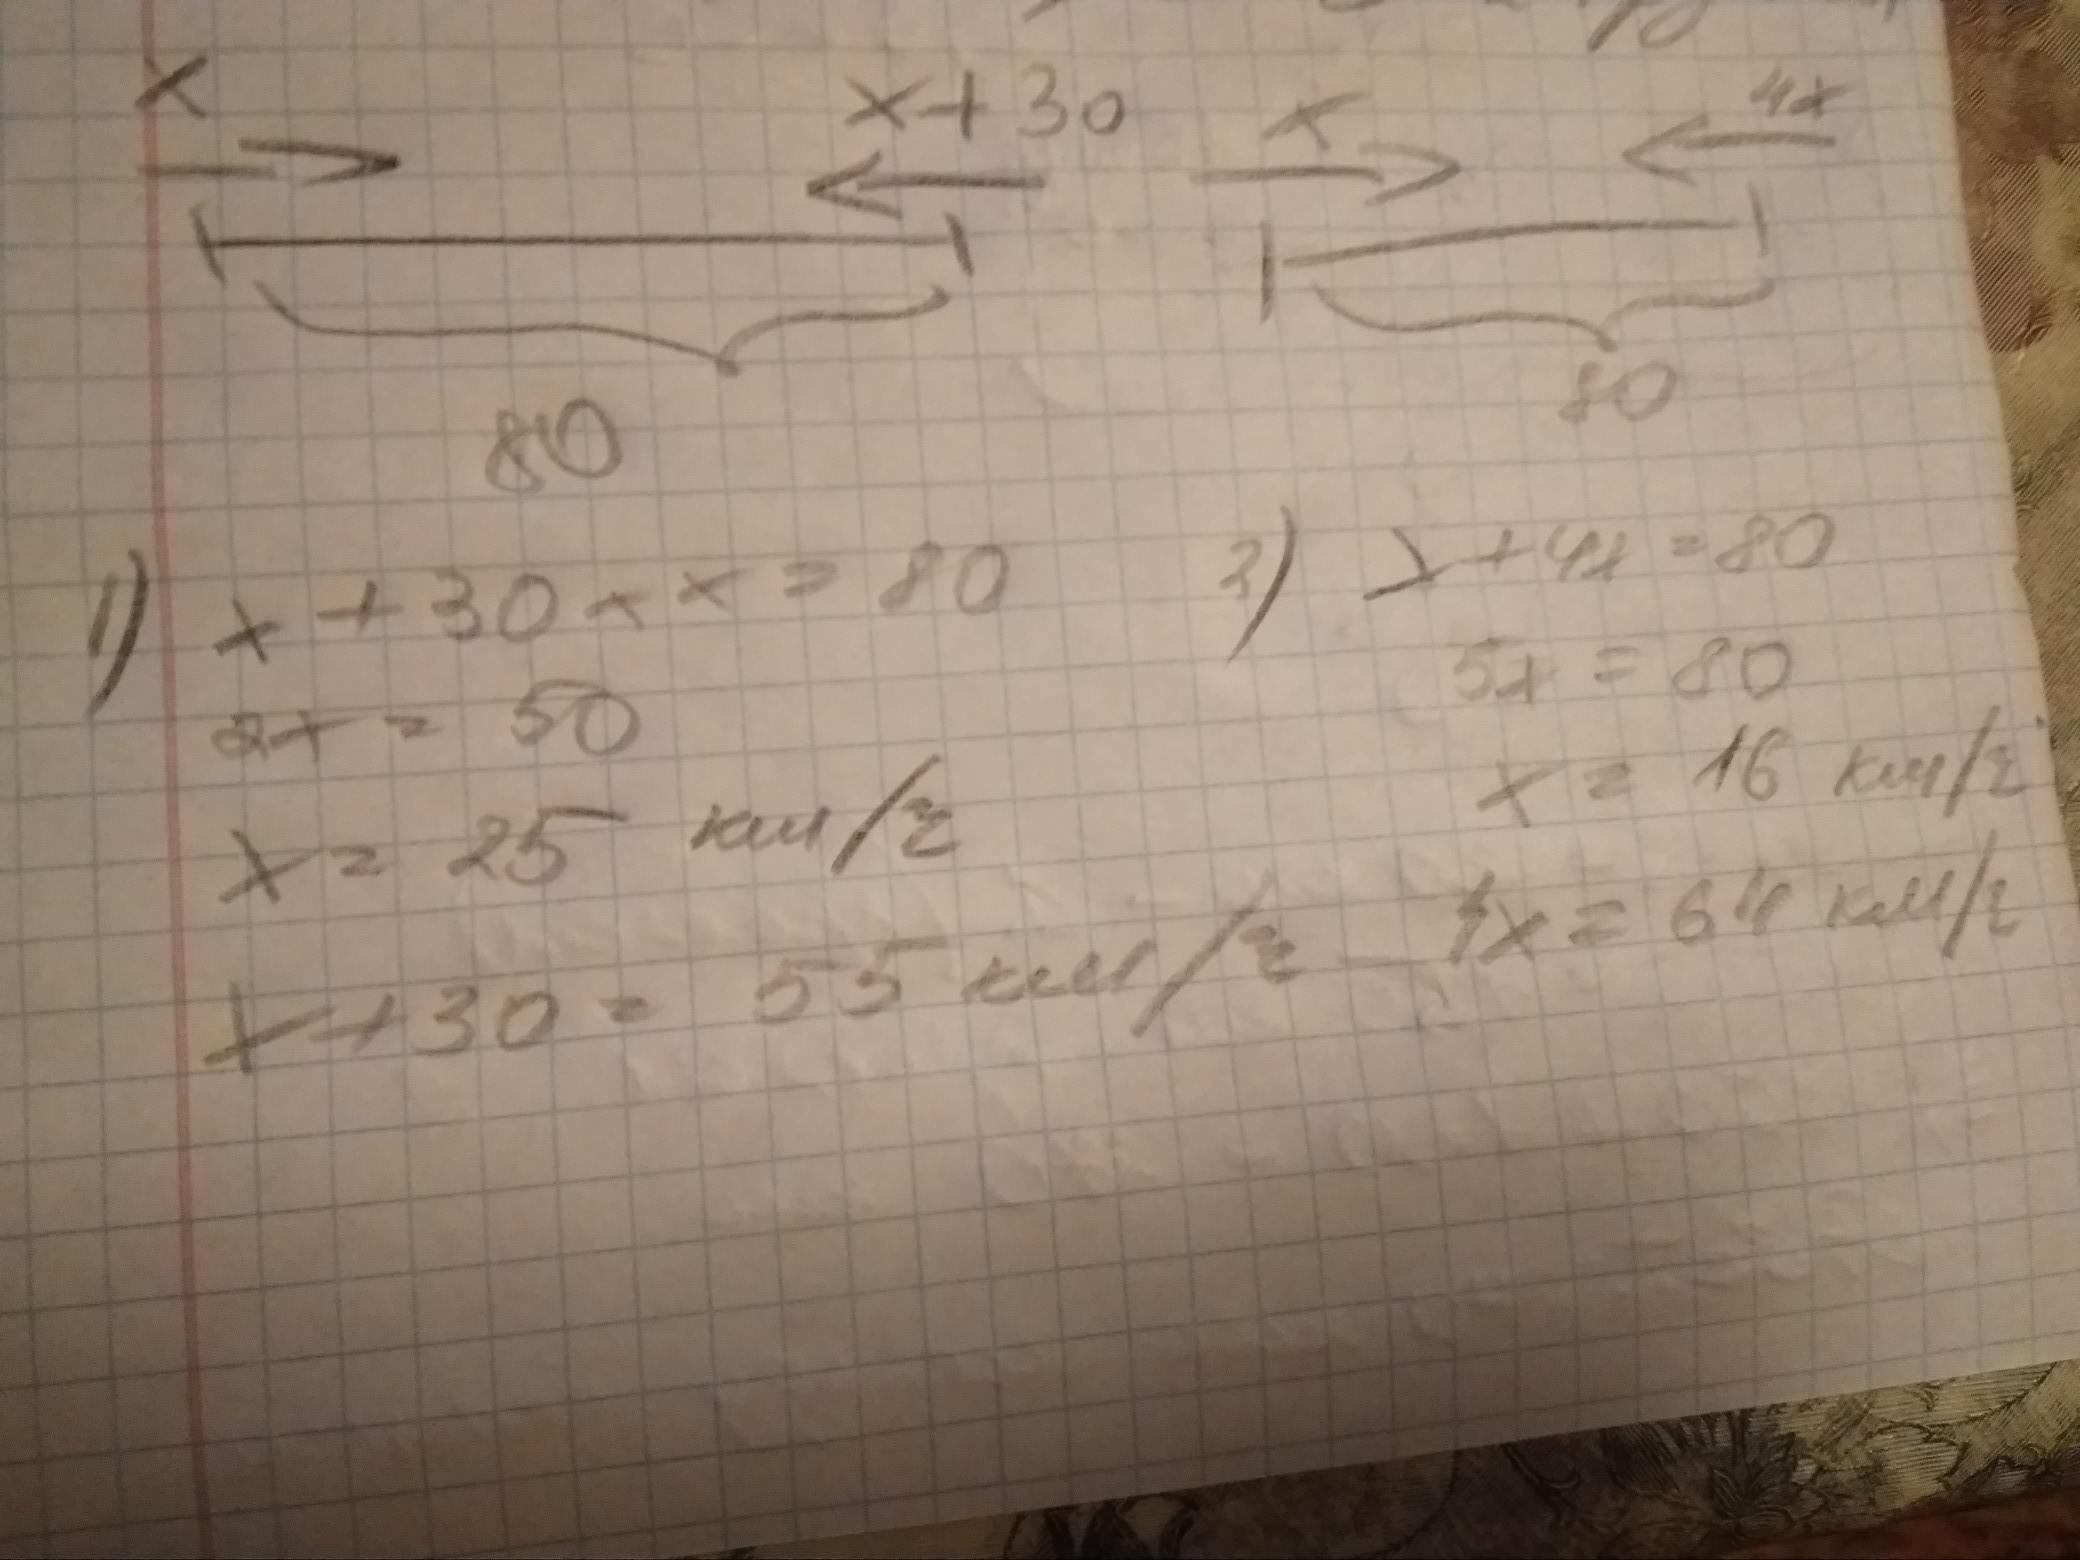 x x+30 x 4x
80 80
1) x + 30 + x = 80
2x = 50
x = 25 км/ч
x + 30 = 55 км/ч
2) x + 4x = 80
5x = 80
x = 16 км/ч
4x = 64 км/ч